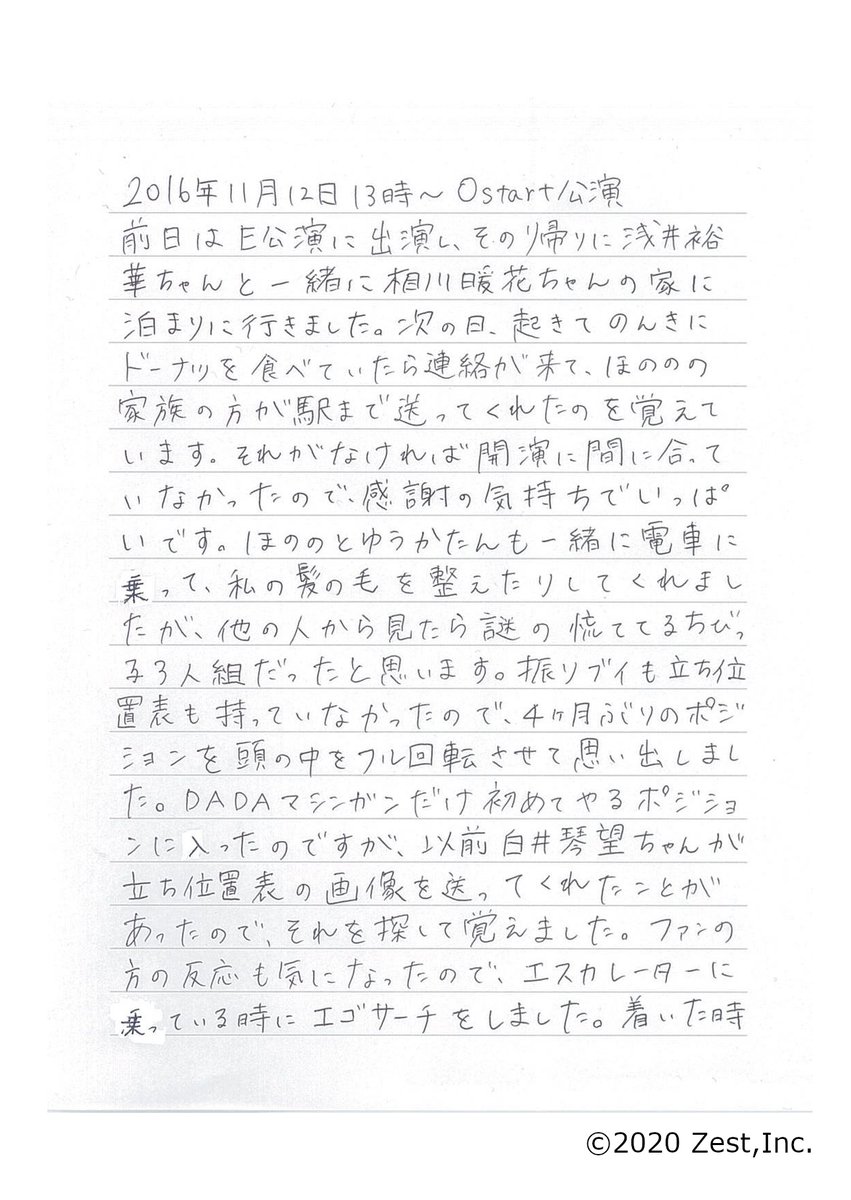 2016年11月12日13時～0start公演
前日はE公演に出演し、その帰りに浅井裕
華ちゃんと一緒に相川暖花ちゃんの家に
泊まりに行きました。次の日、起きてのんきに
ドーナツを食べていたら連絡が来て、ほののの
家族の方が駅まで送ってくれたのを覚えて
います。それがなければ開演に間に合って
いなかったので、感謝の気持ちでいっぱ
いです。ほののとゆうかたんも一緒に電車に
乗って、私の髪の毛を整えたりしてくれまし
たが、他の人から見たら謎の慌ててるちびっ
子3人組だったと思います。振りブイも立ち位
置表も持っていなかったので、4ヶ月ぶりのポジ
ションを頭の中をフル回転させて思い出しまし
た。DADAマシンガンだけ初めてやるポジショ
ンに入ったのですが、以前白井琴望ちゃんが
立ち位置表の画像を送ってくれたことが
あったので、それを探して覚えました。ファンの
方の反応も気になったので、エスカレーターに
乗っている時にエゴサーチをしました。着いた時
©2020 Zest,Inc.